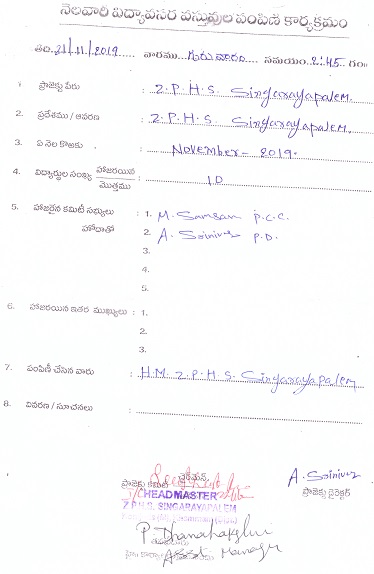 నెలవారి విద్యావసర వస్తువుల పంపిణి కార్యక్రమం
తేది. 21/11/2019 వారము గురువారం సమయం 2:45 గం॥
1. ప్రాజెక్టు పేరు : Z.P.H.S. Singarayapalem.
2. ప్రదేశము / ఆవరణ : Z.P.H.S. Singarayapalem.
3. ఏ నెల కొఱకు : November - 2019.
4. విద్యార్థుల సంఖ్య హాజరయిన / మొత్తము : 10
5. హాజరైన కమిటీ సభ్యులు : 1. M. Samsan P.C.C.
హోదాతో 2. A. Srinivas P.D.
3.
4.
5.
6. హాజరయిన ఇతర ముఖ్యులు : 1.
2.
3.
7. పంపిణీ చేసిన వారు : H.M. Z.P.H.S. Singarayapalem
8. వివరణ / సూచనలు :
చైర్మన్,
ప్రాజెక్టు కమిటీ
HEADMASTER
Z P H S. SINGARAYAPALEM
A. Srinivas
ప్రాజెక్టు డైరెక్టర్
Asst Manager